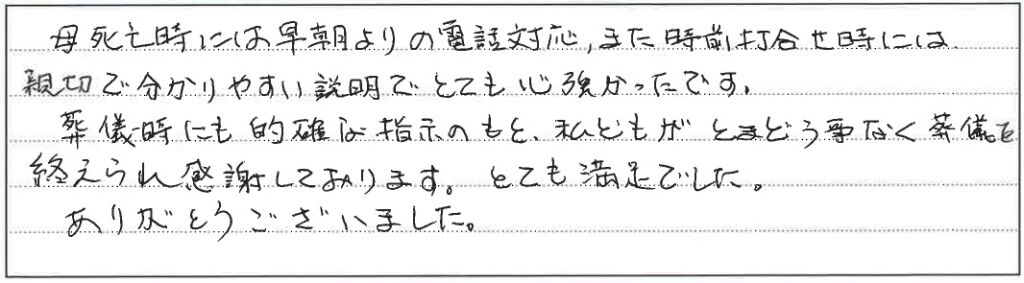 母死亡時には早朝よりの電話対応,また時前打合せ時には
親切で分かりやすい説明でとても心強かったです。
葬儀時にも的確な指示のもと、私どもがとまどう事なく葬儀を
終えられ感謝しております。とても満足でした。
ありがとうございました。